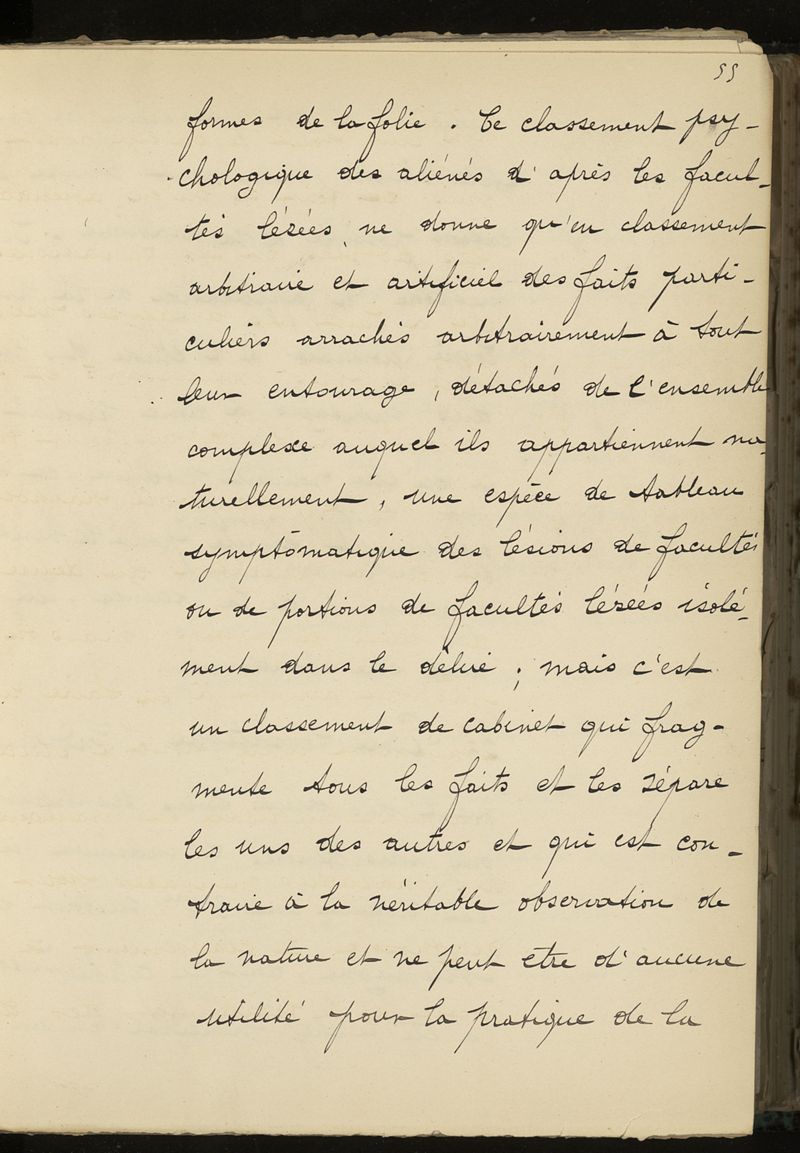 55
formes de la folie. Ce classement psy-
chologique des aliénés d'après les facul-
tés lézées, ne donne qu'un classement
arbitraire et artificiel des faits parti-
culiers arrachés arbitrairement à tout
leur entourage, détachés de l'ensemble
complexe auquel ils appartiennent na-
turellement, une espèce de tableau
symptômatique des lésions de facultés
ou de portions de facultés lézées isolé-
ment dans le délire ; mais c'est
un classement de cabinet qui frag-
mente tous les faits et les sépare
les uns des autres et qui est con-
traire à la véritable observation de
la nature et ne peut etre d'aucune
utilité pour la pratique de la